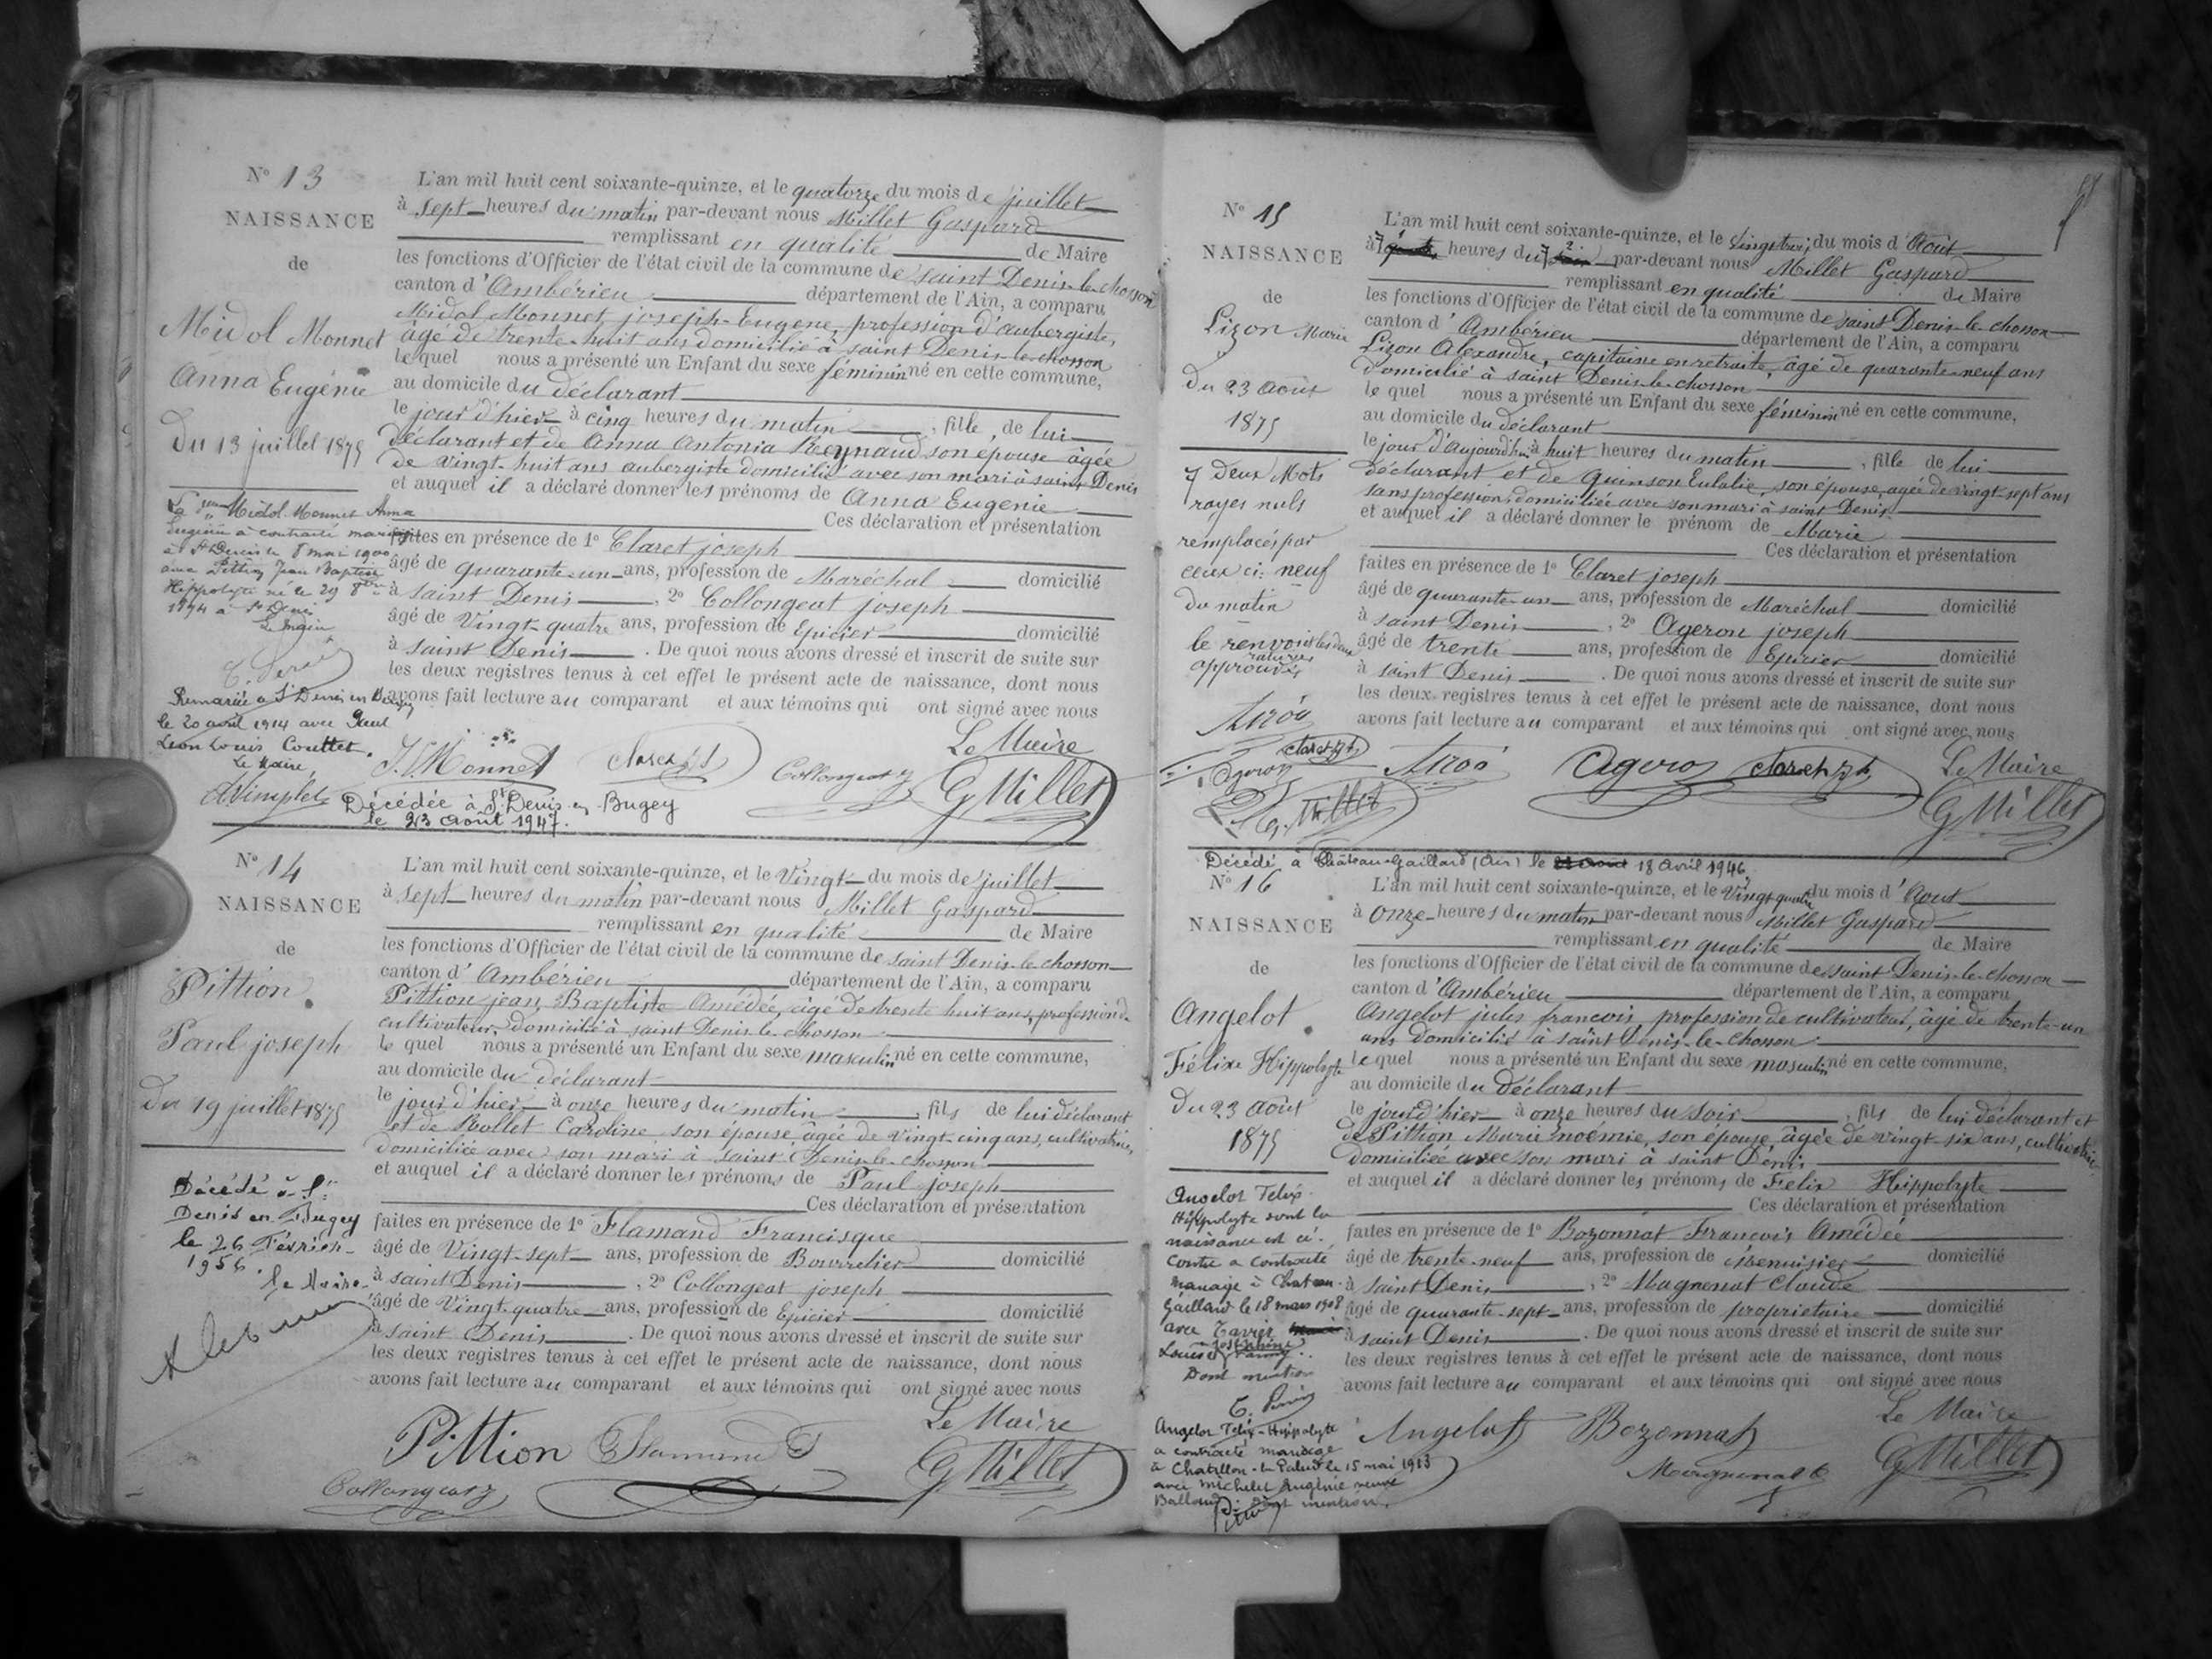 N° 13
NAISSANCE
de
Midol Monnet
Anna Eugénie
Du 13 juillet 1875
L'an mil huit cent soixante-quinze, et le quatorze du mois de juillet
à sept heures du matin par-devant nous Millet Gaspard
remplissant en qualité de Maire
les fonctions d'Officier de l'état civil de la commune de saint Denis-le-chosson
canton d'Ambérieu département de l'Ain, a comparu
Midol Monnet joseph-Eugene, profession d'aubergiste,
âgé de trente-huit ans domicilié à saint Denis-le-chosson
le quel nous a présenté un Enfant du sexe féminin né en cette commune,
au domicile du déclarant
le jour d'hier à cinq heures du matin, fille, de lui
déclarant et de Anna Antonia Reynaud son épouse âgée
de vingt-huit ans aubergiste domicilié avec son mari à saint Denis
et auquel il a déclaré donner les prénoms de Anna Eugenie
Ces déclaration et présentation
faites en présence de 1° Claret joseph
âgé de quarante-un ans, profession de Maréchal domicilié
à saint Denis, 2° Collongeat joseph
âgé de Vingt-quatre ans, profession de Epicier domicilié
à saint Denis. De quoi nous avons dressé et inscrit de suite sur
les deux registres tenus à cet effet le présent acte de naissance, dont nous
avons fait lecture au comparant et aux témoins qui ont signé avec nous
Midol Monnet Anna
Eugénie à contracté mariage
à St Denis le 8 mai 1900
avec Pittion Jean Baptiste
Hippolyte né le 29 8bre
à St Denis
Remariée à St Denis en Bugey
le 20 août 1914 avec Paul
Léon Louis Couttet.
Le Maire
J. Monnet Claret Jh Collongeat Le Maire
G Millet
Décédée à St Denis en Bugey
le 23 août 1947.
N° 14
NAISSANCE
de
Pittion
Paul joseph
Du 19 juillet 1875
L'an mil huit cent soixante-quinze, et le Vingt du mois de juillet
à sept heures du matin par-devant nous Millet Gaspard
remplissant en qualité de Maire
les fonctions d'Officier de l'état civil de la commune de saint Denis-le-chosson
canton d'Ambérieu département de l'Ain, a comparu
Pittion jean Baptiste Amédée, âgé de trente huit ans, profession de
cultivateur, domicilié à saint Denis-le-chosson
le quel nous a présenté un Enfant du sexe masculin né en cette commune,
au domicile du déclarant
le jour d'hier à onze heures du matin, fils de lui déclarant
et de Rollet Caroline son épouse, âgée de vingt-cinq ans, cultivatrice,
domiciliée avec son mari à saint Denis-le-chosson
et auquel il a déclaré donner les prénoms de Paul joseph
Ces déclaration et présentation
faites en présence de 1° Flamand Francisque
âgé de Vingt-sept ans, profession de Bourrelier domicilié
à saint Denis, 2° Collongeat joseph
âgé de Vingt-quatre ans, profession de Epicier domicilié
à saint Denis. De quoi nous avons dressé et inscrit de suite sur
les deux registres tenus à cet effet le présent acte de naissance, dont nous
avons fait lecture au comparant et aux témoins qui ont signé avec nous
Décédé à St
Denis en Bugey
le 26 Février
1956.
Le Maire
Pittion Flamand F Le Maire
Collongeat G Millet
N° 15
NAISSANCE
de
Lizon Marie
Du 23 Août
1875
L'an mil huit cent soixante-quinze, et le vingt trois du mois d'Août
à heures du par-devant nous Millet Gaspard
remplissant en qualité de Maire
les fonctions d'Officier de l'état civil de la commune de saint Denis-le-chosson
canton d'Ambérieu département de l'Ain, a comparu
Lizon Alexandre, capitaine en retraite, âgé de quarante-neuf ans
domicilié à saint Denis-le-chosson
le quel nous a présenté un Enfant du sexe féminin né en cette commune,
au domicile du déclarant
le jour d'aujourd'hui à huit heures du matin, fille de lui
déclarant et de Quinson Eulalie, son épouse, agée de vingt-sept ans
sans profession, domiciliée avec son mari à saint Denis
et auquel il a déclaré donner le prénom de Marie
Ces déclaration et présentation
faites en présence de 1° Claret joseph
âgé de quarante-un ans, profession de Maréchal domicilié
à saint Denis, 2° Ageron joseph
âgé de trente ans, profession de Epicier domicilié
à saint Denis. De quoi nous avons dressé et inscrit de suite sur
les deux registres tenus à cet effet le présent acte de naissance, dont nous
avons fait lecture au comparant et aux témoins qui ont signé avec nous
7 Deux Mots
rayés nuls
remplacés par
ceux ci: neuf
du matin
le renvoi et les deux
ratures
approuvés
Claret Jh
Ageron
G. Millet
Ageron Claret Jh Le Maire
G Millet
Décédé à Château-Gaillard (Ain) le 18 Avril 1946
N° 16
NAISSANCE
de
Angelot
Félix Hippolyte
Du 23 Août
1875
L'an mil huit cent soixante-quinze, et le Vingt quatre du mois d'Aout
à onze heures du matin par-devant nous Millet Gaspard
remplissant en qualité de Maire
les fonctions d'Officier de l'état civil de la commune de saint Denis-le-chosson
canton d'Ambérieu département de l'Ain, a comparu
Angelot jules francois, profession de cultivateur, âgé de trente-un
ans domicilié à saint Denis-le-chosson
le quel nous a présenté un Enfant du sexe masculin né en cette commune,
au domicile du déclarant
le jour d'hier à onze heures du soir, fils de lui déclarant et
de Pittion Marie noémie, son épouse âgée de vingt-six ans, cultivatrice
domiciliée avec son mari à saint Denis
et auquel il a déclaré donner les prénoms de Felix Hippolyte
Ces déclaration et présentation
faites en présence de 1° Bozonnat François Amédée
âgé de trente-neuf ans, profession de Menuisier domicilié
à saint Denis, 2° Magnenat Claude
âgé de quarante-sept ans, profession de propriétaire domicilié
à saint Denis. De quoi nous avons dressé et inscrit de suite sur
les deux registres tenus à cet effet le présent acte de naissance, dont nous
avons fait lecture au comparant et aux témoins qui ont signé avec nous
Angelot Felix
Hippolyte dont la
naissance est ci-
contre a contracté
mariage à Chateau-
Gaillard le 18 mars 1908
avec
Louise Joséphine
Dont mention
Angelot Félix-Hippolyte
a contracté mariage
à Chatillon-la-Palud le 15 mai 1913
avec Michelet Eugénie veuve
Dont mention.
Angelot Bozonnat Le Maire
Magnenat C G Millet